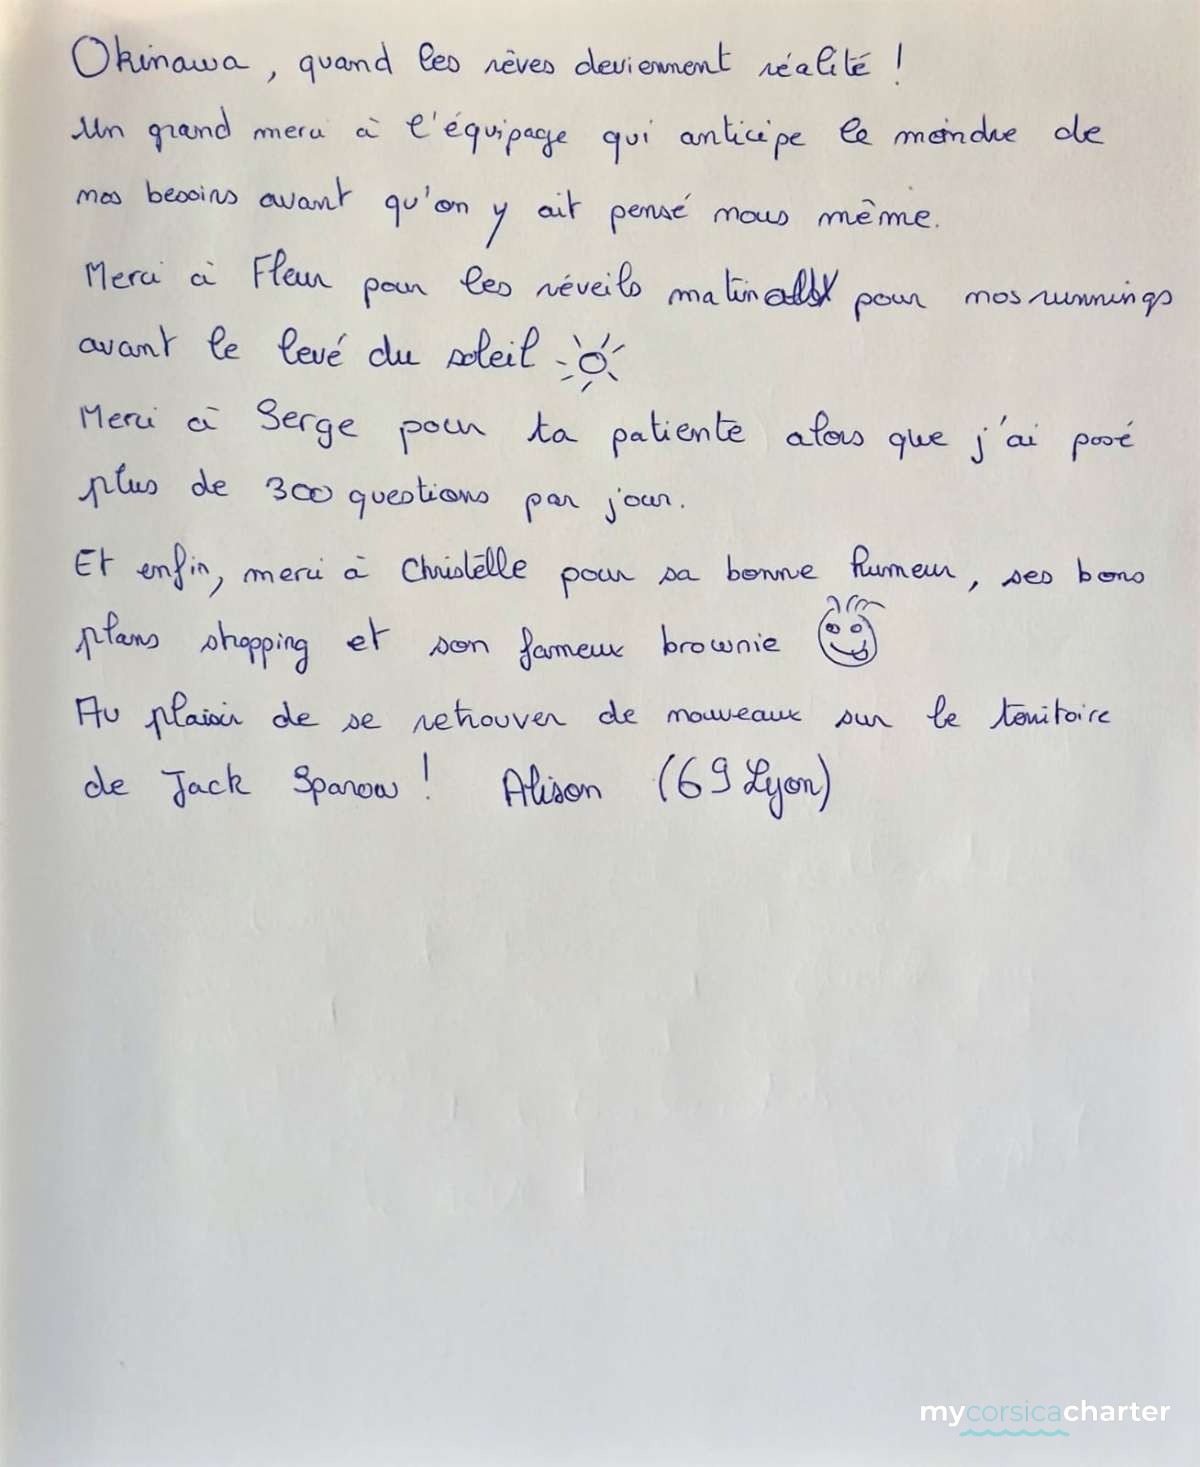 Okinawa, quand les rêves deviennent réalité !
Un grand merci à l'équipage qui anticipe le moindre de
nos besoins avant qu'on y ait pensé nous même.
Merci à Fleur pour les réveils matinaux pour nos runnings
avant le levé du soleil
Merci à Serge pour ta patiente alors que j'ai posé
plus de 300 questions par jour.
Et enfin, merci à Christèlle pour sa bonne humeur, ses bons
plans shopping et son fameux brownie
Au plaisir de se retrouver de nouveaux sur le territoire
de Jack Sparow ! Alison (69 Lyon)
mycorsicacharter